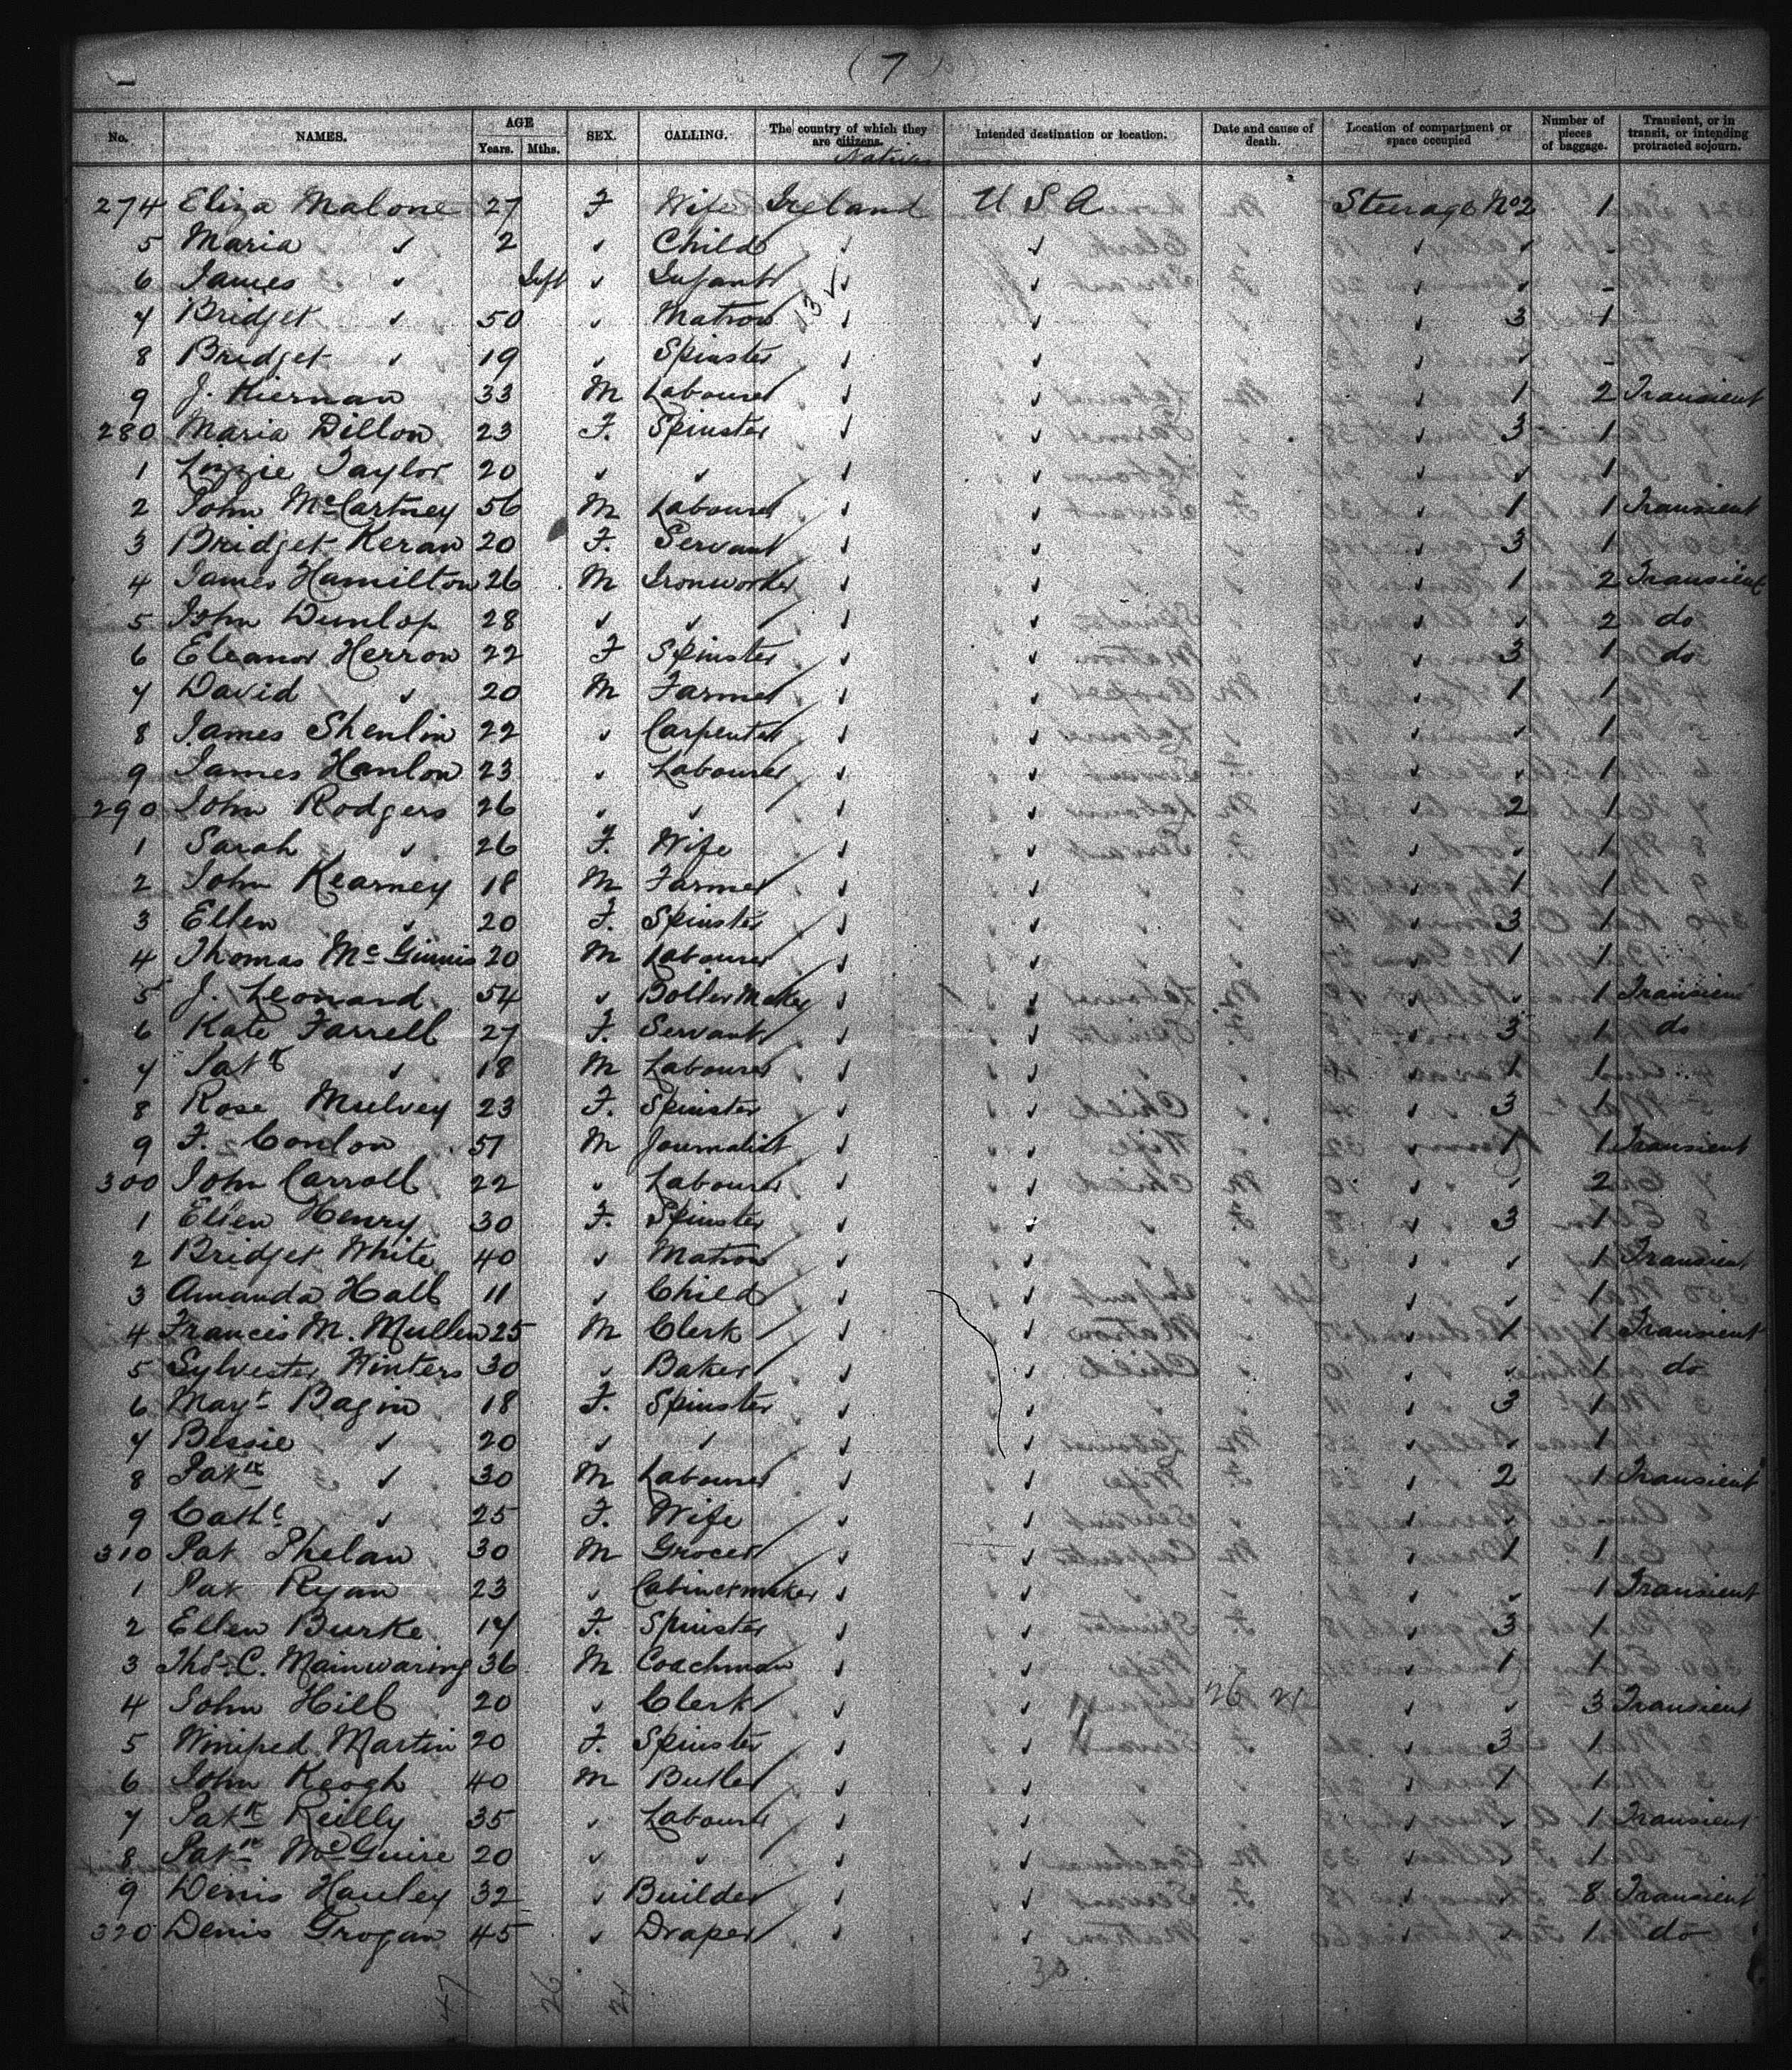 ( 7 )
No. NAMES. AGE Years. Mths. SEX. CALLING. The country of which they are citizens. Natives Intended destination or location. Date and cause of death. Location of compartment or space occupied Number of pieces of baggage. Transient, or in transit, or intending protracted sojourn.
274 Eliza Malone 27 F Wife Ireland U S A Steerage No 2 1
5 Maria ✓ 2 ✓ Child ✓ ✓ ✓ ✓ -
6 James ✓ Inft ✓ Infant ✓ ✓ ✓ ✓ -
7 Bridget ✓ 50 ✓ Matron ✓ ✓ ✓ 3 1
8 Bridget ✓ 19 ✓ Spinster ✓ ✓ ✓ ✓ -
9 J. Kiernan 33 M Labourer ✓ ✓ ✓ 1 2 Transient
280 Maria Dillon 23 F. Spinster ✓ ✓ ✓ 3 1
1 Lizzie Taylor 20 ✓ ✓ ✓ ✓ ✓ ✓ 1
2 John McCartney 56 M Labourer ✓ ✓ ✓ 1 1 Transient
3 Bridget Keran 20 F. Servant ✓ ✓ ✓ 3 1
4 James Hamilton 26 M Ironworker ✓ ✓ ✓ 1 2 Transient
5 John Dunlop 28 ✓ ✓ ✓ ✓ ✓ ✓ 2 do
6 Eleanor Herron 22 F Spinster ✓ ✓ ✓ 3 1 do
7 David ✓ 20 M Farmer ✓ ✓ ✓ 1 1
8 James Shenlin 22 ✓ Carpenter ✓ ✓ ✓ ✓ 1
9 James Hanlon 23 ✓ Labourer ✓ ✓ ✓ ✓ 1
290 John Rodgers 26 ✓ ✓ ✓ ✓ ✓ 2 1
1 Sarah ✓ 26 F. Wife ✓ ✓ ✓ ✓ 1
2 John Kearney 18 M Farmer ✓ ✓ ✓ 1 1
3 Ellen ✓ 20 F. Spinster ✓ ✓ ✓ 3 1
4 Thomas McGinnis 20 M Labourer ✓ ✓ ✓ 1 1
5 J. Leonard 54 ✓ Boiler Maker ✓ ✓ ✓ ✓ 1 Transient
6 Kate Farrell 27 F. Servant ✓ ✓ ✓ 3 1 do
7 Patk ✓ 18 M Labourer ✓ ✓ ✓ 1 1
8 Rose Mulvey 23 F. Spinster ✓ ✓ ✓ 3 1
9 F. Conlon 51 M Journalist ✓ ✓ ✓ 1 1 Transient
300 John Carroll 22 ✓ Labourer ✓ ✓ ✓ ✓ 2
1 Ellen Henry 30 F. Spinster ✓ ✓ ✓ 3 1
2 Bridget White 40 ✓ Matron ✓ ✓ ✓ ✓ 1 Transient
3 Amanda Hall 11 ✓ Child ✓ ✓ ✓ ✓ 1
4 Francis M. Mullen 25 M Clerk ✓ ✓ ✓ 1 1 Transient
5 Sylvester Winters 30 ✓ Baker ✓ ✓ ✓ ✓ 1 do
6 Mayt Bagin 18 F. Spinster ✓ ✓ ✓ 3 1
7 Bessie ✓ 20 ✓ ✓ ✓ ✓ ✓ ✓ 1
8 Patk ✓ 30 M Labourer ✓ ✓ ✓ 2 1 Transient
9 Cathe ✓ 25 F. Wife ✓ ✓ ✓ ✓
310 Pat Phelan 30 M Grocer ✓ ✓ ✓ 1 1
1 Pat Ryan 23 ✓ Cabinetmaker ✓ ✓ ✓ ✓ 1 Transient
2 Ellen Burke 17 F. Spinster ✓ ✓ ✓ 3 1
3 Thos C. Mainwaring 36 M Coachman ✓ ✓ ✓ 1 1
4 John Hill 20 ✓ Clerk ✓ ✓ 26 21 ✓ ✓ 3 Transient
5 Winifred Martin 20 F. Spinster ✓ ✓ ✓ 3 1
6 John Keogh 40 M Butler ✓ ✓ ✓ 1 1
7 Patk Reilly 35 ✓ Labourer ✓ ✓ ✓ ✓ 1 Transient
8 Patk McGuire 20 ✓ ✓ ✓ ✓ ✓ ✓ 1
9 Denis Hauley 32 ✓ Builder ✓ ✓ ✓ ✓ 8 Transient
320 Denis Grogan 45 ✓ Draper ✓ ✓ ✓ ✓ 1 do
47 26 21 30